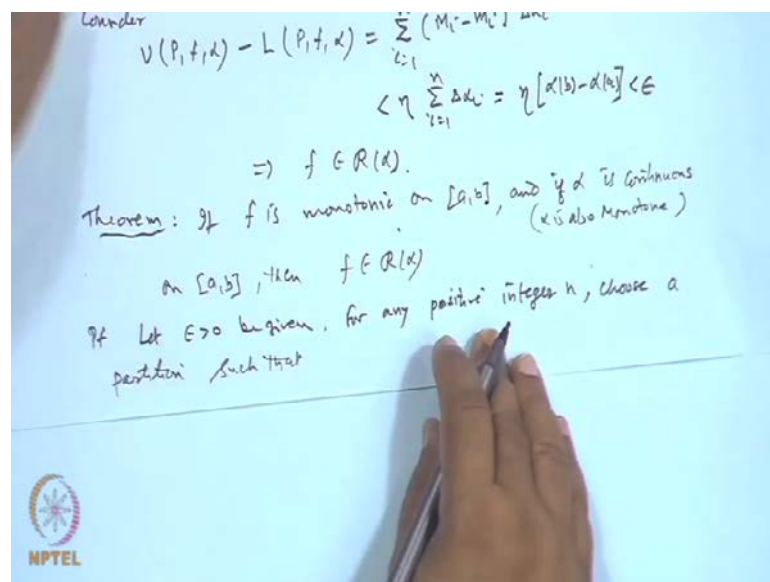 Consider
U(P,f,α) - L(P,f,α) = Σ_{i=1}^{n} (Mi - mi) Δαi
< η Σ_{i=1}^{n} Δαi = η [α(b)-α(a)] < ε
=> f ∈ R(α).
Theorem: If f is monotonic on [a,b], and if α is continuous
(α is also Monotone)
on [a,b], then f ∈ R(α)
Pf Let ε>0 be given. For any positive integer n, choose a
partition such that
NPTEL